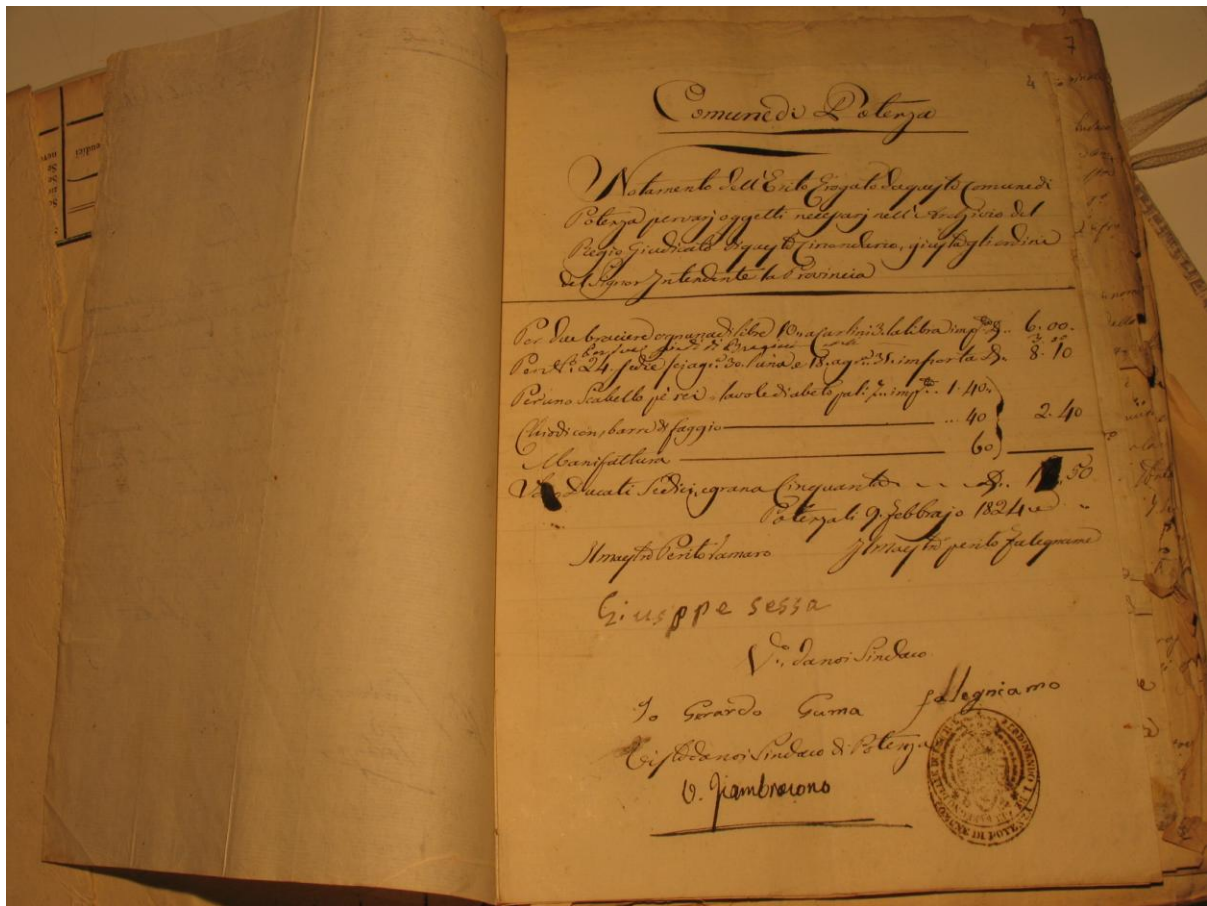 Comune di Potenza
Notamento dell'Esito Erogato da questo Comune di
Potenza per varj oggetti necessarj nell'Archivio del
Regio Giudicato di questo Circondario, giusta gli ordini
del Signor Intendente la Provincia
Per due braciere di libre 10 a Carlini 3. la libra imp. 6.00.
Per N.º 24. sedie sei a gr. 30. l'una e 18. a gr. 35. importa D. 8.10
Per uno Scabello tavole di abeto imp. 1.40
Chiodi con barre di faggio 40 2.40
Manifattura 60
Ducati Sedici, e grana Cinquanta D. .50
Potenza li 9. Febbrajo 1824
Il maestro Perito Ramaro Il Maestro perito Falegname
Giusppe sessa
V.º da noi Sindaco
Io Gerardo Guma falegniamo
Visto da noi Sindaco di Potenza
FERDINANDO I
COMUNE DI POTENZA